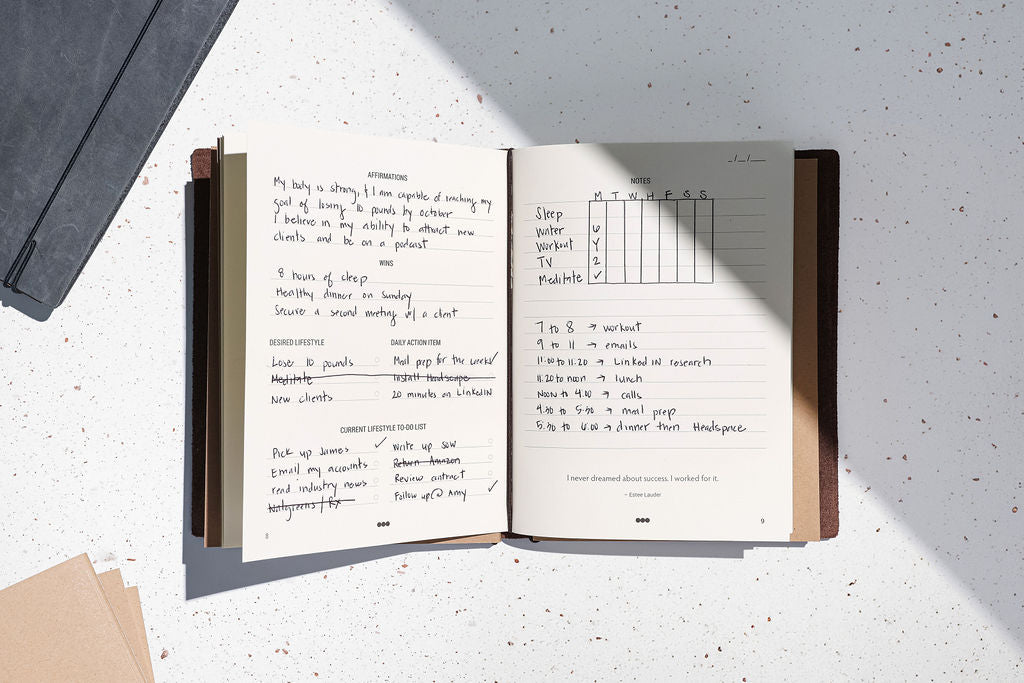 AFFIRMATIONS
My body is strong, & I am capable of reaching my
goal of losing 10 pounds by october
I believe in my ability to attract new
clients and be on a podcast
WINS
8 hours of sleep
Healthy dinner on Sunday
Secure a second meeting w/ a client
DESIRED LIFESTYLE
Lose 10 pounds
Meditate
New clients
DAILY ACTION ITEM
Meal prep for the week ✓
Install Headspace
20 minutes on LinkedIN
CURRENT LIFESTYLE TO-DO LIST
Pick up James ✓
Email my accounts
read industry news
Walgreens / Rx
Write up SOW
Return Amazon
Review contract
Follow up @ Amy ✓
8
_/_/_
NOTES
M T W H F S S
Sleep
Water 6
Workout Y
TV 2
Meditate ✓
7 to 8 → workout
9 to 11 → emails
11:00 to 11:20 → Linked IN research
11:20 to noon → lunch
Noon to 4:00 → calls
4:30 to 5:30 → meal prep
5:30 to 6:00 → dinner then Headspace
I never dreamed about success. I worked for it.
– Estee Lauder
9